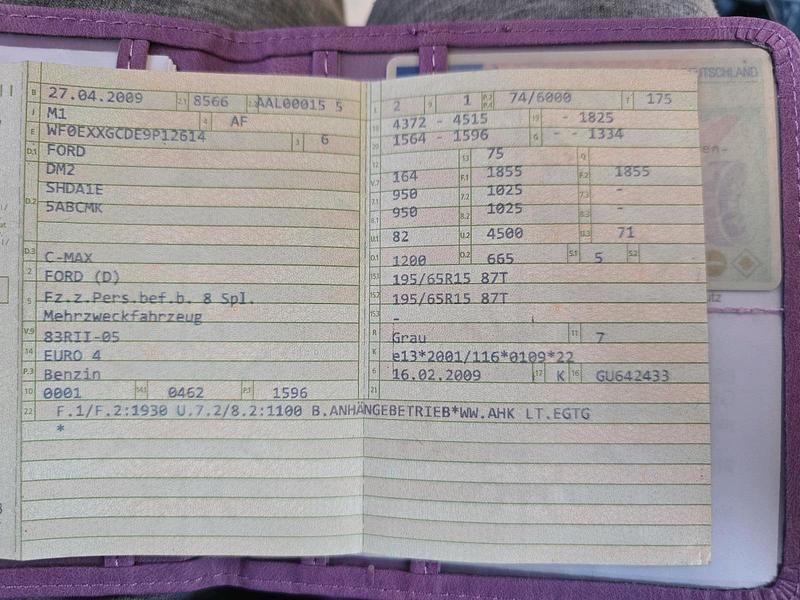 B 27.04.2009 2.1 8566 2.2 AAL00015 5
J M1 4 AF
E WF0EXXGCDE9P12614 3 6
D.1 FORD
DM2
SHDA1E
D.2 5ABCMK
D.3 C-MAX
2 FORD (D)
5 Fz.z.Pers.bef.b. 8 Spl.
Mehrzweckfahrzeug
V.9 83RII-05
14 EURO 4
P.3 Benzin
10 0001 14.1 0462 P.1 1596
L 2 9 1 P.2 P.4 74/6000 T 175
18 4372 - 4515 19 - - 1825
20 1564 - 1596 G - - 1334
12 13 75 Q
V.7 164 F.1 1855 F.2 1855
7.1 950 7.2 1025 7.3 -
8.1 950 8.2 1025 8.3 -
U.1 82 U.2 4500 U.3 71
O.1 1200 O.2 665 S.1 5 S.2
15.1 195/65R15 87T
15.2 195/65R15 87T
15.3 -
R Grau 11 7
K e13*2001/116*0109*22
6 16.02.2009 17 K 16 GU642433
21
22 F.1/F.2:1930 U.7.2/8.2:1100 B.ANHÄNGEBETRIEB*WW.AHK LT.EGTG
*